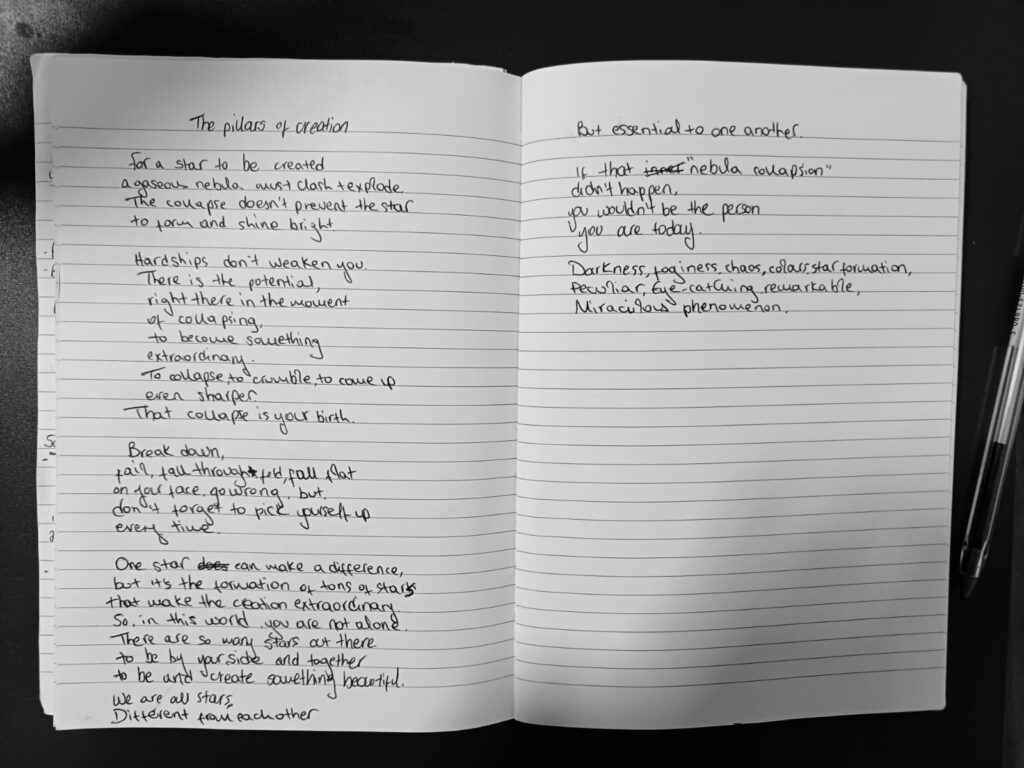 The pillars of creation
for a star to be created
a gaseous nebula must clash + explode.
The collapse doesn't prevent the star
to form and shine bright
Hardships don't weaken you.
There is the potential,
right there in the moment
of collapsing,
to become something
extraordinary.
To collapse, to crumble, to come up
even sharper.
That collapse is your birth.
Break down,
fail, fall through, fold, fall flat
on your face, go wrong, but,
don't forget to pick yourself up
every time.
One star does can make a difference,
but it's the formation of tons of stars
that make the creation extraordinary
So, in this world, you are not alone.
There are so many stars out there
to be by your side and together
to be and create something beautiful.
We are all stars,
Different from each other
But essential to one another.
If that inner "nebula collapsion"
didn't happen,
you wouldn't be the person
you are today.
Darkness, foginess, chaos, colours, star formation,
Peculiar, Eye-catching, remarkable,
Miraculous phenomenon.